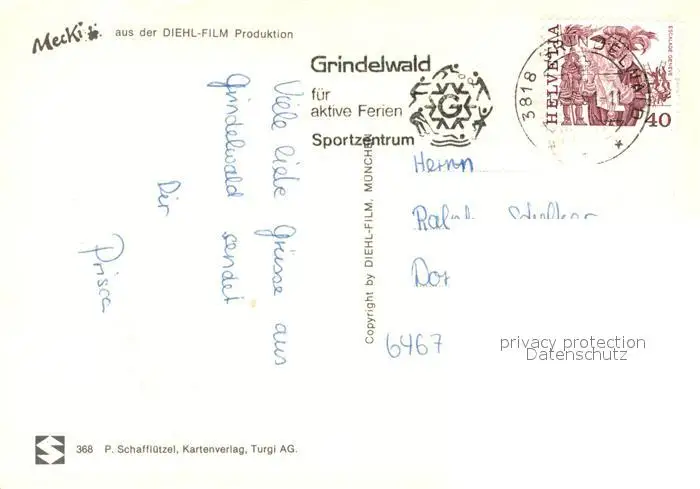 Mecki aus der DIEHL-FILM Produktion
Viele liebe Grüsse aus
Grindelwald sendet
Dir
Prisca
Grindelwald
für
aktive Ferien
Sportzentrum
G
3818 GRINDELWALD
HELVETIA
ESCALADE GENÈVE
40
Copyright by DIEHL-FILM, MÜNCHEN
Herrn
Ralph
6467
privacy protection
Datenschutz
368 P. Schafflützel, Kartenverlag, Turgi AG.